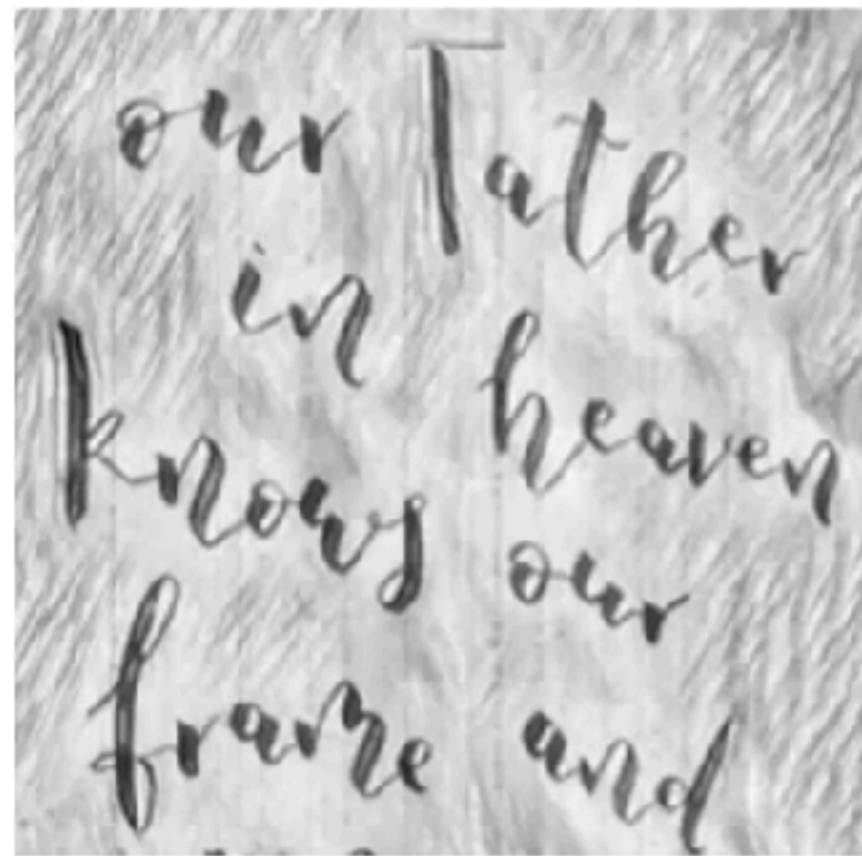 our Father
in heaven
knows our
frame and